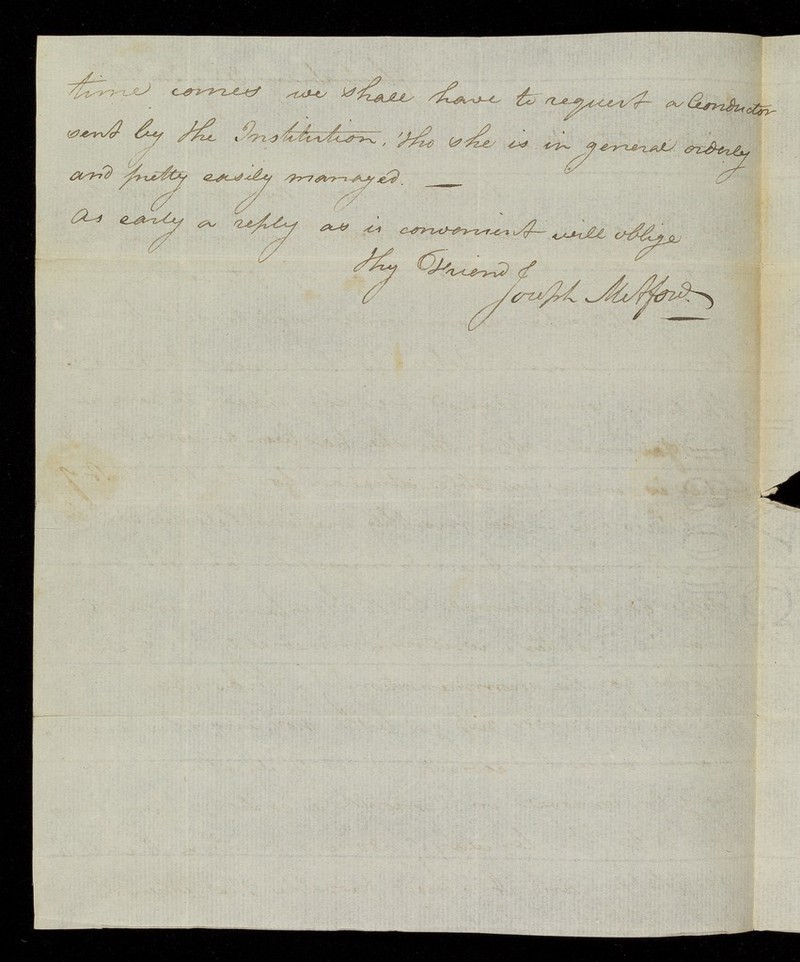 time comes we shall have to request a Conductor
sent by the Institution, tho' she is in general orderly
and pretty easily managed. —
As early a reply as is convenient will oblige
thy Friend
Joseph Metford